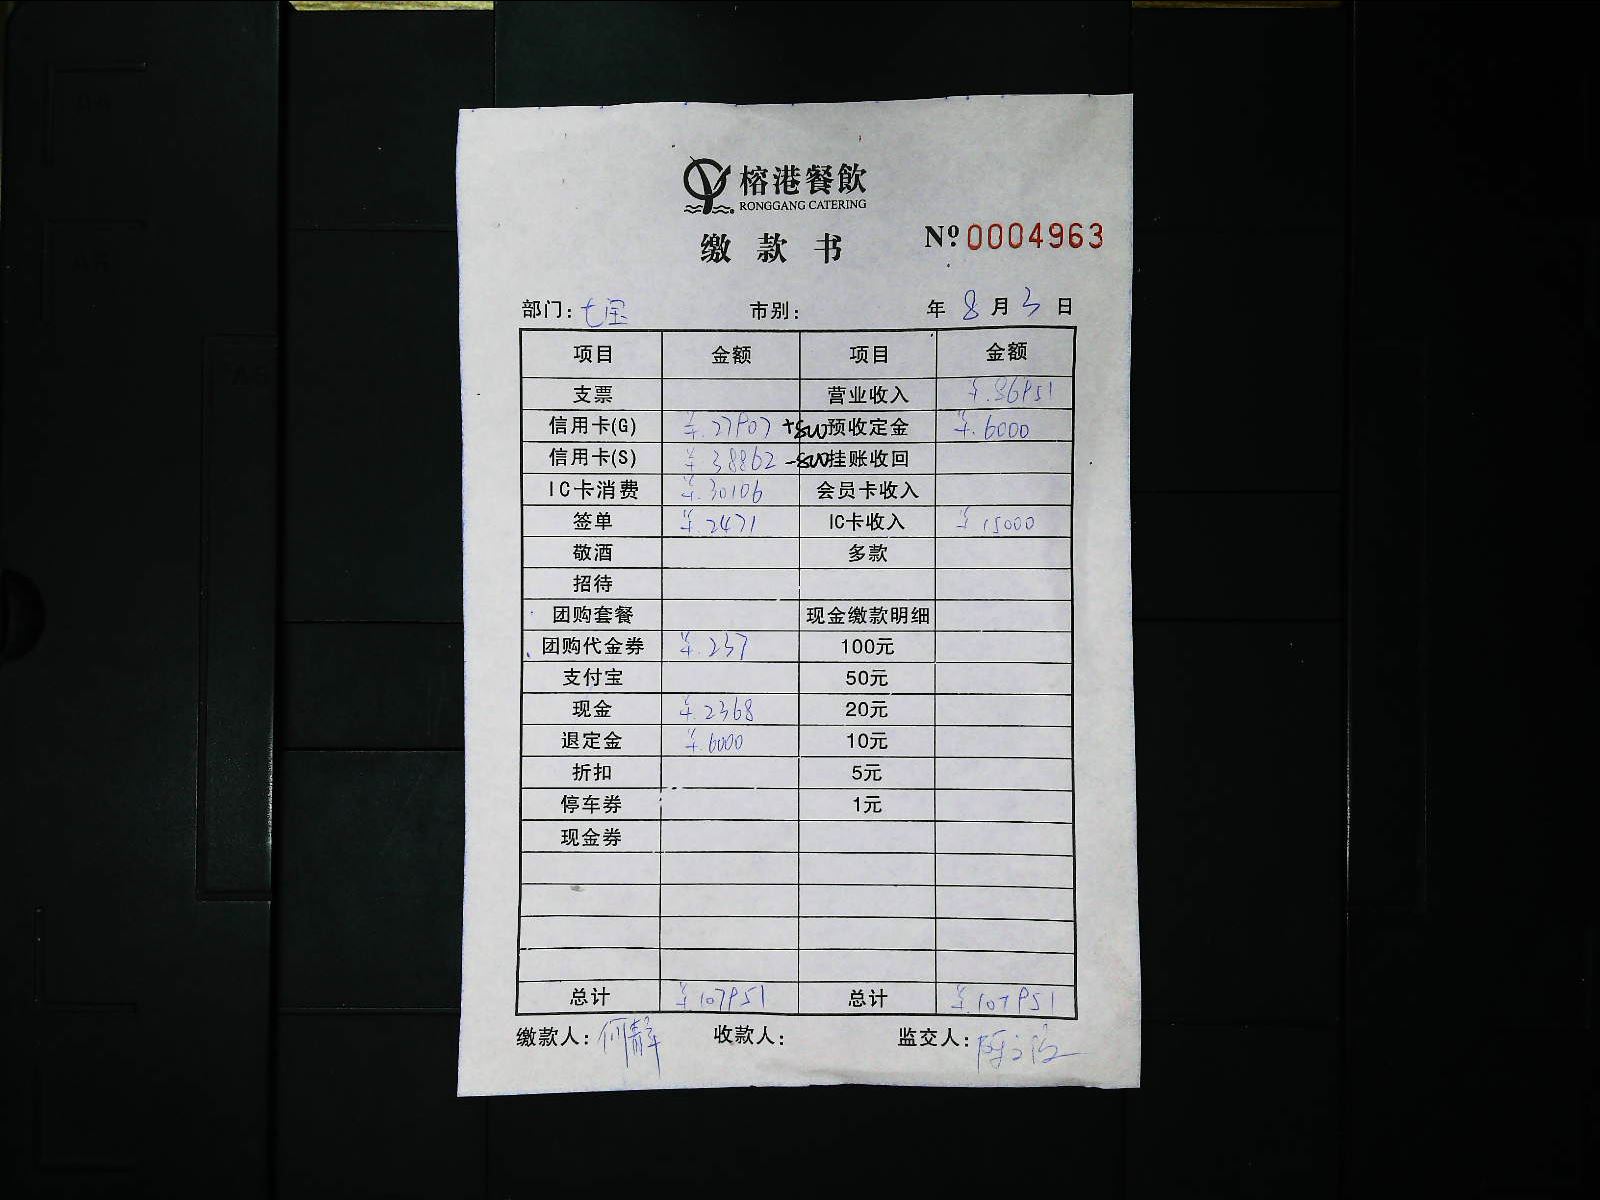 榕港餐飲
RONGGANG CATERING
缴款书
№ 0004963
部门: 七宝 市别: 年 8 月 3 日
项目 金额 项目 金额
支票 营业收入 ¥.86951
信用卡(G) ¥.27907 +500 预收定金 ¥.6000
信用卡(S) ¥ 38862 -500 挂账收回
IC卡消费 ¥.30106 会员卡收入
签单 ¥.2471 IC卡收入 ¥ 15000
敬酒 多款
招待
团购套餐 现金缴款明细
团购代金券 ¥.237 100元
支付宝 50元
现金 ¥.2368 20元
退定金 ¥.6000 10元
折扣 5元
停车券 1元
现金券
总计 ¥.107951 总计 ¥.107951
缴款人: 何静 收款人: 监交人: